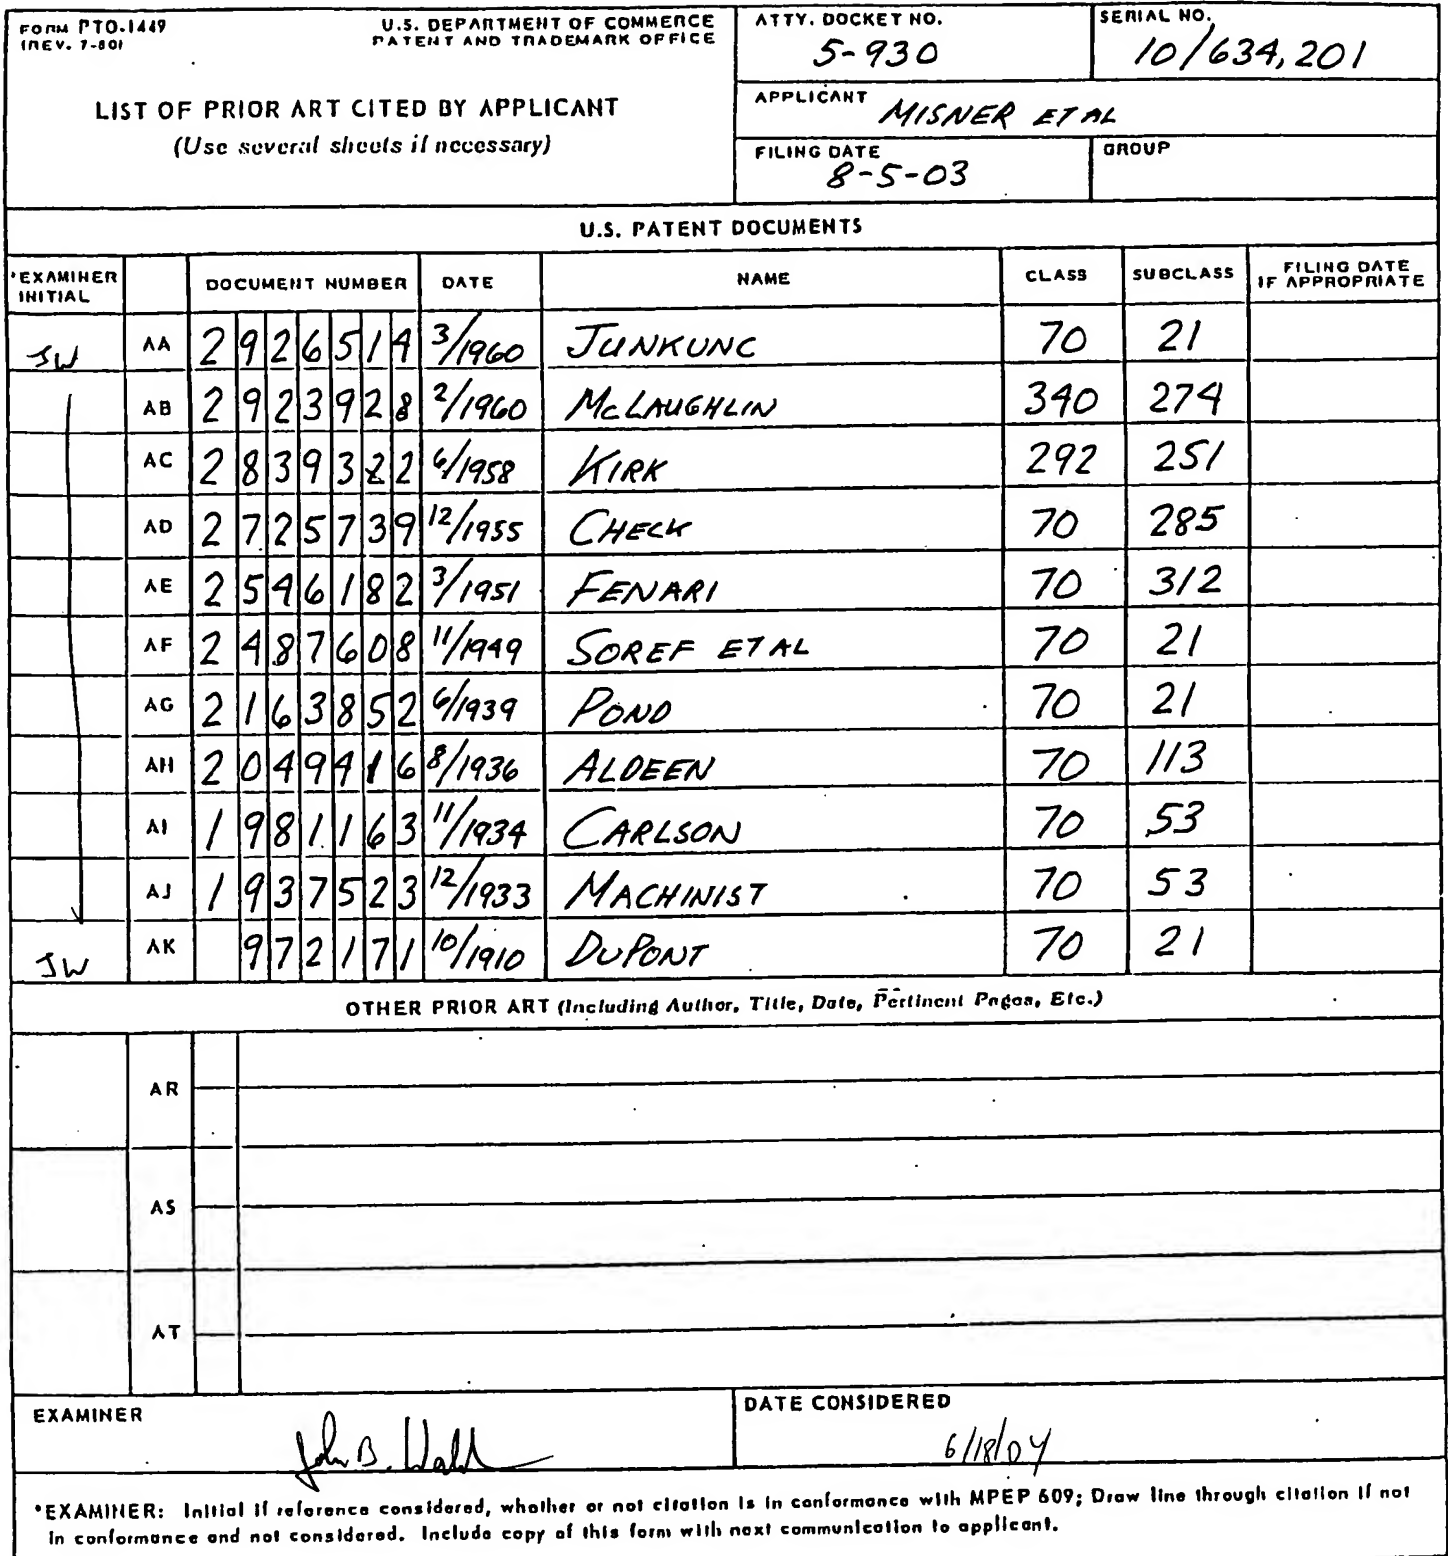 FORM PTO-1449
(REV. 7-80)
U.S. DEPARTMENT OF COMMERCE
PATENT AND TRADEMARK OFFICE
ATTY. DOCKET NO.
5-930
SERIAL NO.
10/634,201
LIST OF PRIOR ART CITED BY APPLICANT
(Use several sheets if necessary)
APPLICANT
MISNER ET AL
FILING DATE
8-5-03
GROUP
U.S. PATENT DOCUMENTS
*EXAMINER INITIAL DOCUMENT NUMBER DATE NAME CLASS SUBCLASS FILING DATE IF APPROPRIATE
JW AA 2926514 3/1960 JUNKUNC 70 21
AB 2923928 2/1960 MCLAUGHLIN 340 274
AC 2839322 6/1958 KIRK 292 251
AD 2725739 12/1955 CHECK 70 285
AE 2546182 3/1951 FENARI 70 312
AF 2487608 11/1949 SOREF ET AL 70 21
AG 2163852 6/1939 POND 70 21
AH 2049416 8/1936 ALDEEN 70 113
AI 1981163 11/1934 CARLSON 70 53
AJ 1937523 12/1933 MACHINIST 70 53
JW AK 972171 10/1910 DUPONT 70 21
OTHER PRIOR ART (Including Author, Title, Date, Pertinent Pages, Etc.)
AR
AS
AT
EXAMINER
John B.
DATE CONSIDERED
6/18/04
*EXAMINER: Initial if reference considered, whether or not citation is in conformance with MPEP 609; Draw line through citation if not
in conformance and not considered. Include copy of this form with next communication to applicant.